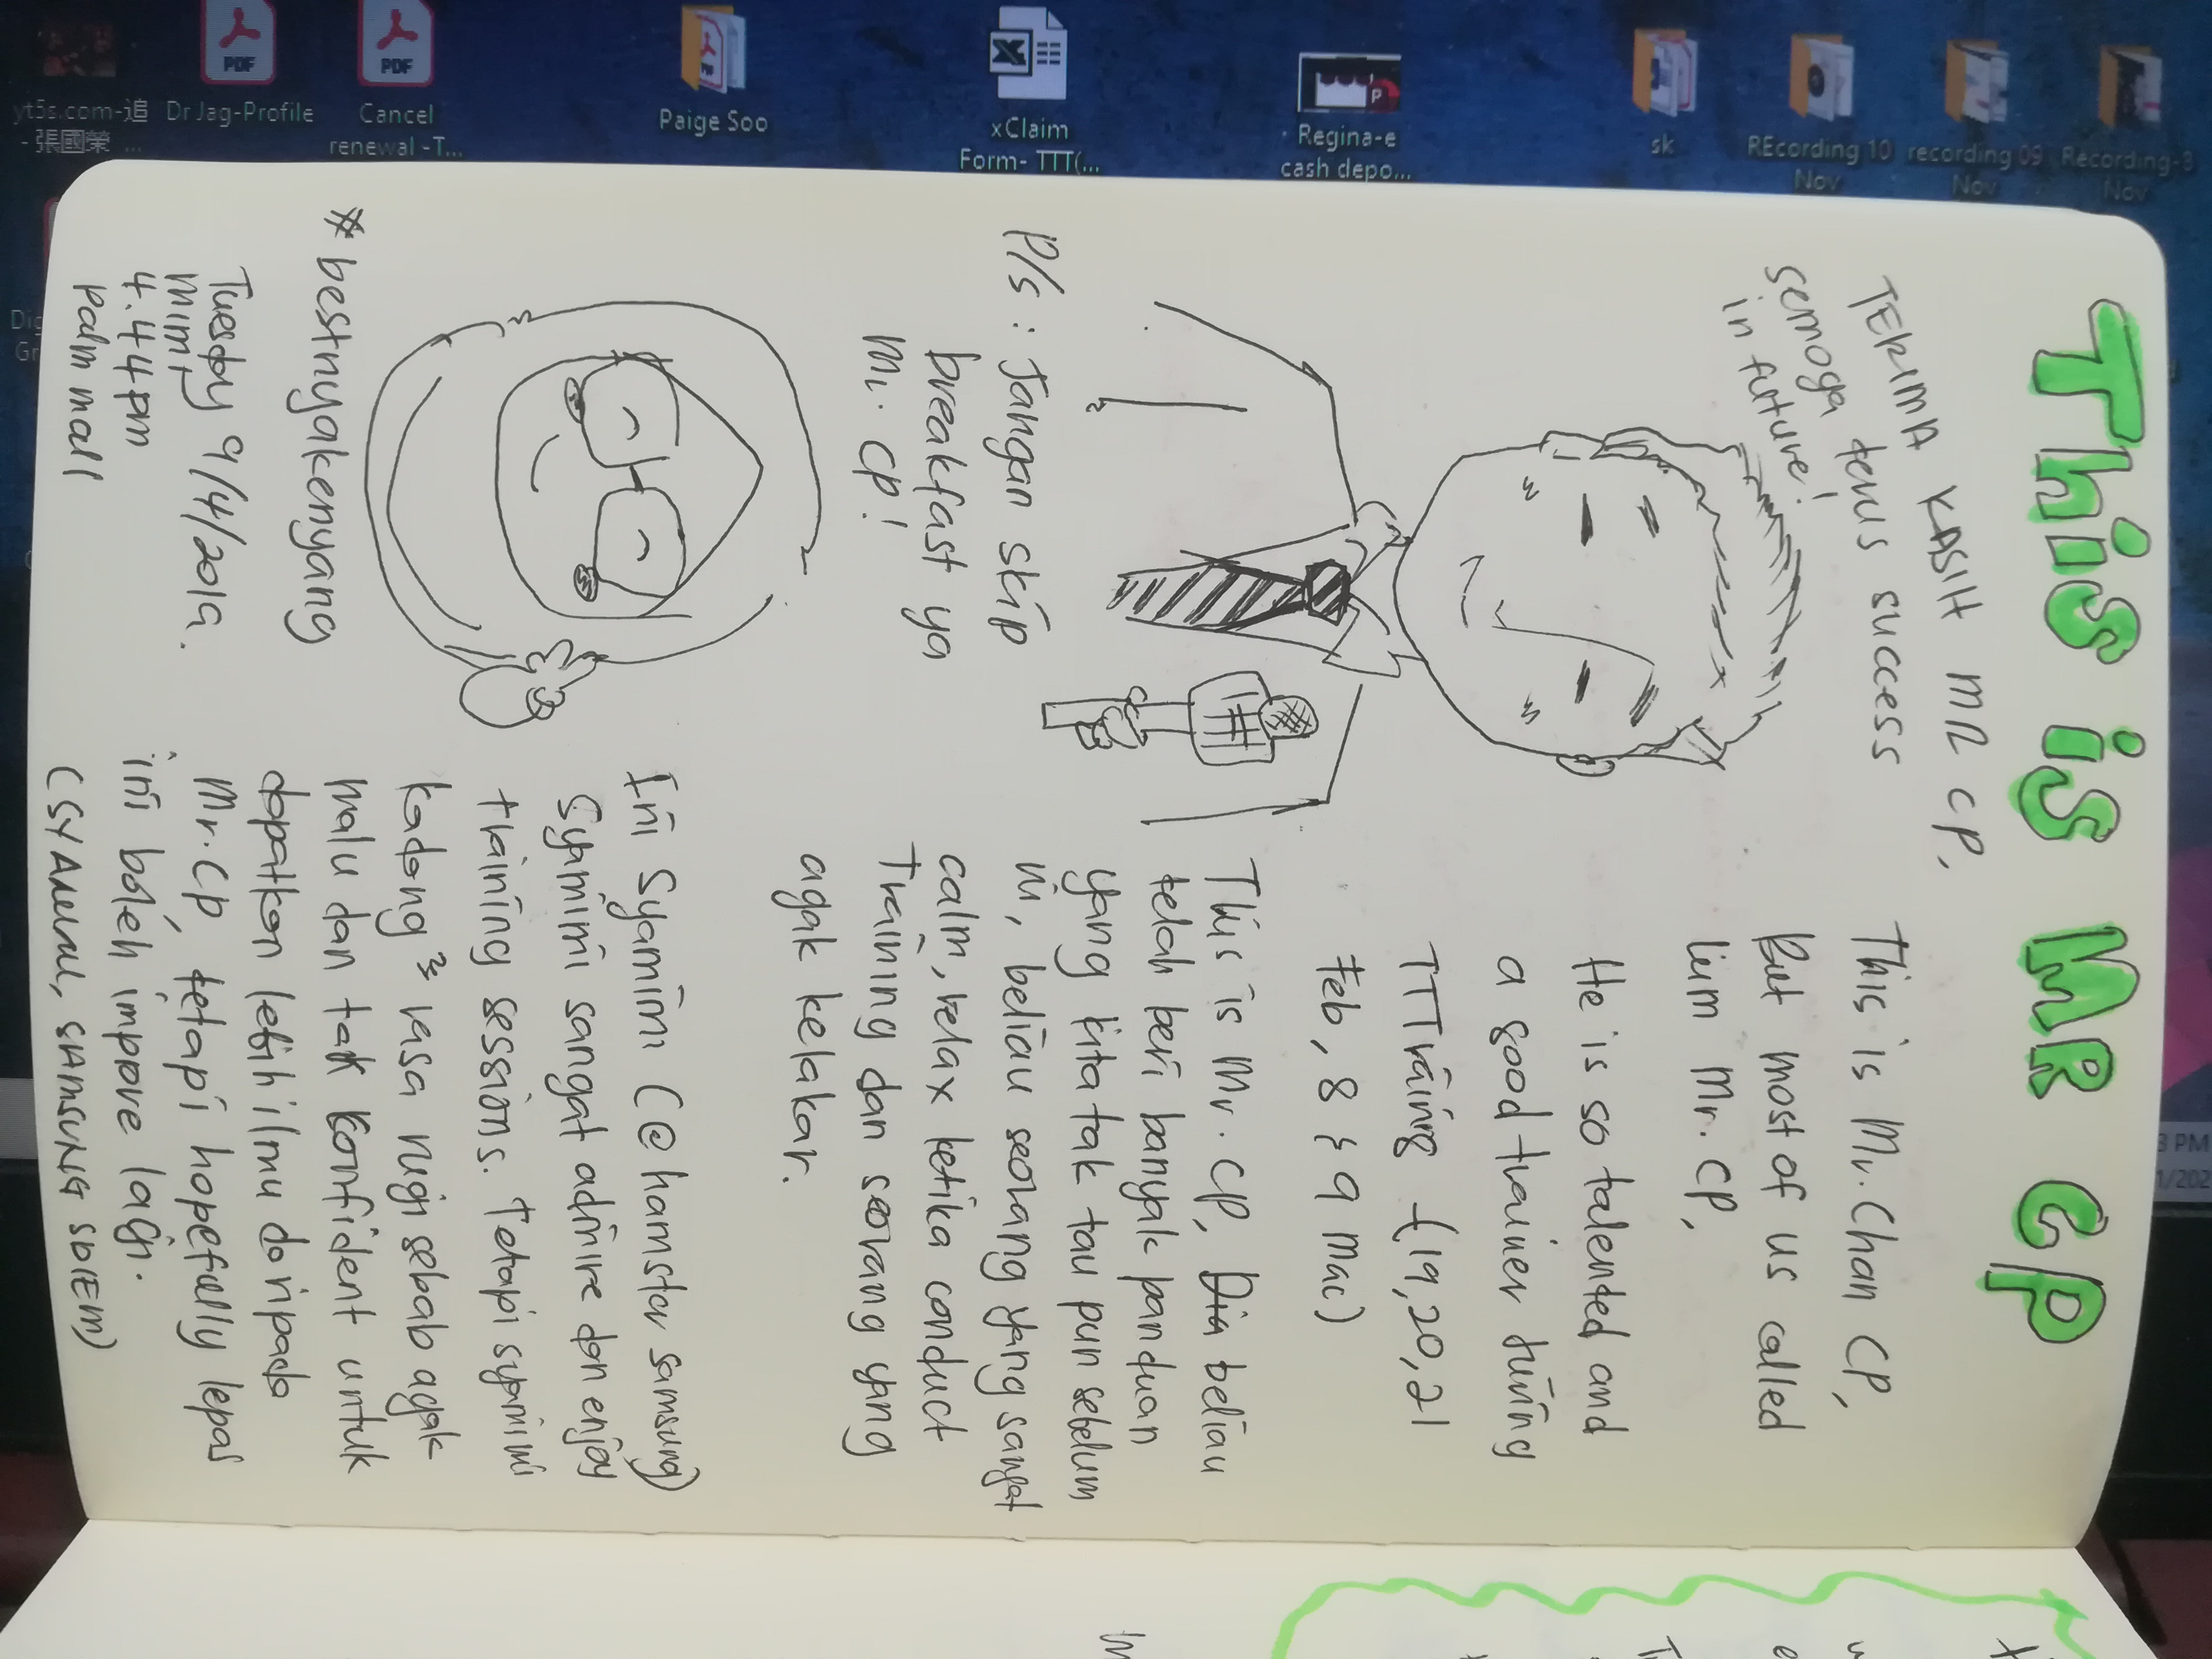 This is MR CP
TERIMA KASIH MR CP,
semoga terus success
in future!
This is Mr. Chan CP,
But most of us called
him Mr. CP,
He is so talented and
a good trainer during
TTTraining (19, 20, 21
Feb, 8 & 9 Mac)
This is Mr. CP, Dia beliau
telah beri banyak panduan
yang kita tak tau pun sebelum
ni, beliau seorang yang sangat
calm, relax ketika conduct
Training dan seorang yang
agak kelakar.
P/s: Jangan skip
breakfast ya
Mr. CP!
Ini Syamimi (@hamster samsung)
Syamimi sangat admire dan enjoy
training sessions. Tetapi syamimi
kadang² rasa rugi sebab agak
malu dan tak konfident untuk
dapatkan lebih ilmu daripada
Mr. CP, tetapi hopefully lepas
ini boleh improve lagi.
(SYAMIMI, SAMSUNG SDIEM)
*bestnyakenyang
Tuesday 9/4/2019.
mimi,
4.44pm
Palm mall
yt5s.com-追
- 張國榮 ...
Dr Jag-Profile
Cancel
renewal -T...
Paige Soo
xClaim
Form- TTT(...
Regina-e
cash depo...
sk
REcording 10
Nov
recording 09
Nov
Recording-8
Nov
PDF
PDF